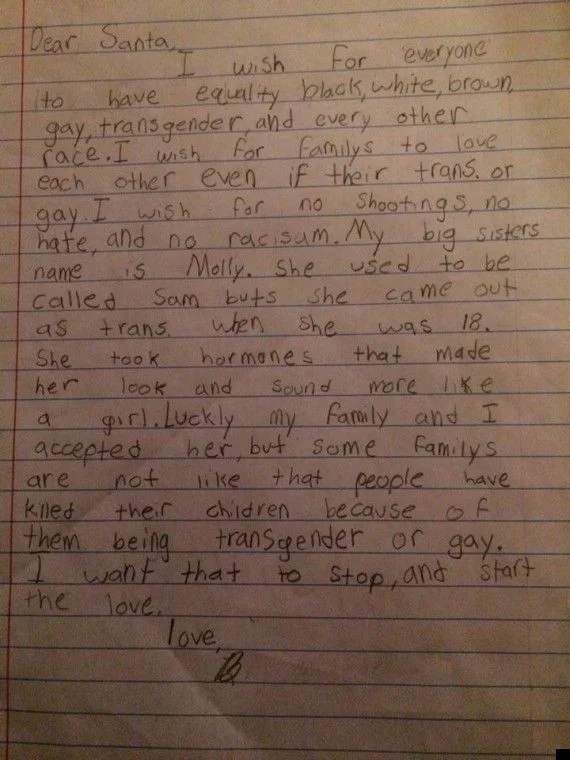 Dear Santa,
I wish for everyone
to have equality black, white, brown,
gay, transgender, and every other
race. I wish for familys to love
each other even if their trans. or
gay. I wish for no shootings, no
hate, and no racisum. My big sisters
name is Molly. She used to be
called Sam buts she came out
as trans. when she was 18.
She took hormones that made
her look and sound more like
a girl. Luckly my family and I
accepted her, but some familys
are not like that people have
killed their children because of
them being transgender or gay.
I want that to stop, and start
the love.
love,